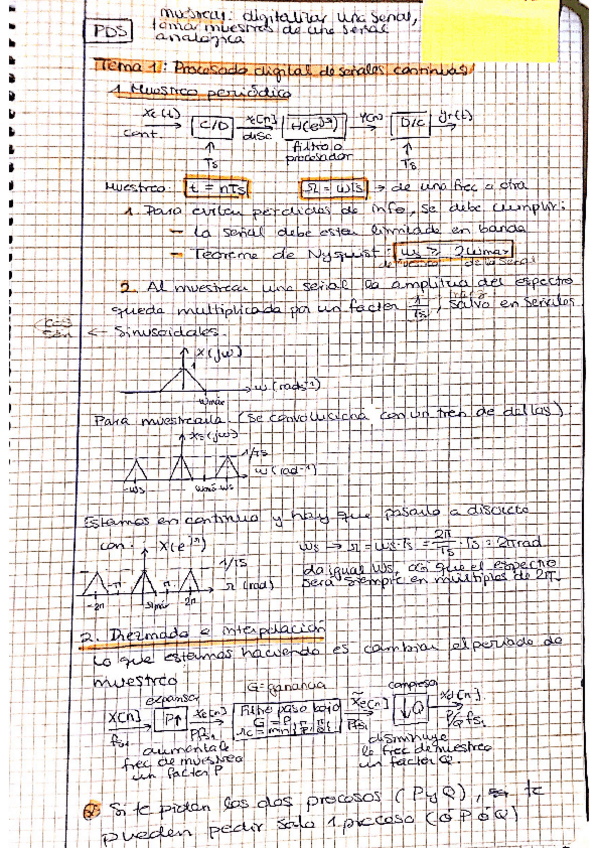 PDS
muestrear: digitalizar una señal,
toma muestras de una señal
analógica
Tema 1: Procesado digital de señales continuas
1. Muestreo periódico
Xc(t) → C/D → x[n] → H(e^jΩ) → Y[n] → D/C → Yr(t)
cont. disc
filtro o
procesador
Ts Ts
Muestreo: t = nTs Ω = ωTs → de una frec a otra
1. Para evitar perdidas de info, se debe cumplir:
- La señal debe estar limitada en banda
- Teorema de Nyquist: ωs ≥ 2ωmax
de la señal
2. Al muestrear una señal la amplitud del espectro
queda multiplicada por un factor 1/Ts, salvo en señales
cos
sen ← sinusoidales.
X(jω)
1
ω (rads^-1)
ωmáx
Para muestrearla (se convoluciona con un tren de deltas)
Xs(jω)
1/Ts
ω (rad^-1)
-ωs ωmáx ωs
Estamos en continuo y hay que pasarlo a discreto
con: X(e^jΩ) ωs → Ω = ωs·Ts = 2π/Ts · Ts = 2π rad
1/Ts
da igual ωs, así que el espectro
-π π Ω (rad) será siempre en múltiplos de 2π.
-2π Ωmáx 2π
2. Diezmado e interpolación
Lo que estamos haciendo es cambiar el periodo de
muestreo
G = ganancia
expansor compresor
X[n] → P↑ → Xe[n] → Filtro paso bajo → x̃e[n] → ↓Q → Xd[n]
G = P,
Ωc = min{π/P, π/Q}
fs1 Pfs1 Pfs1 P/Q fs1
aumenta la
frec de muestreo
un factor P
disminuye
la frec de muestreo
un factor Q.
Si te piden los dos procesos (P y Q), te
pueden pedir solo 1 proceso (ó P ó Q)